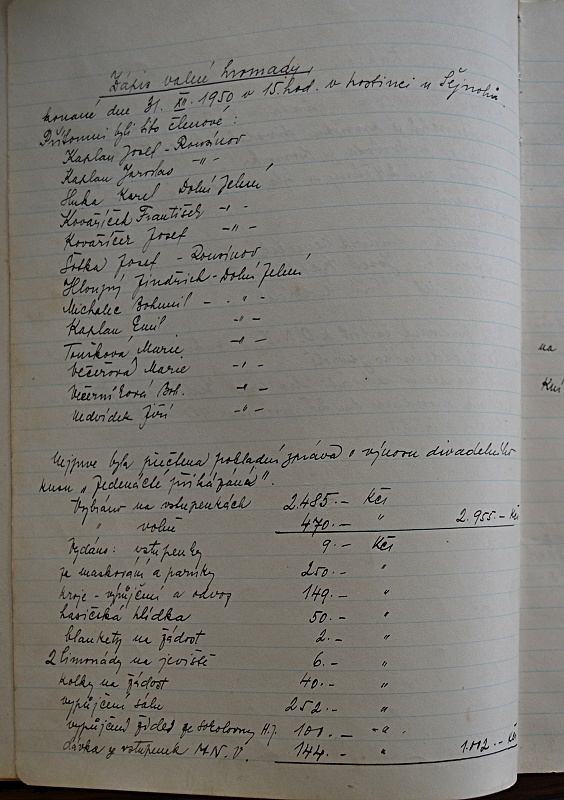 Zápis valné hromady,
konané dne 31. XII. 1950 v 15 hod. v hostinci u Šejnohů.
Přítomni byli tito členové:
Kaplan Josef - Rousínov
Kaplan Jaroslav -"-
Karel Dolní Jelení
Kovaříček František -"-
Kovaříček Josef -"-
Sotka Josef - Rousínov
Hloupý Jindřich - Dolní Jelení
Michalec Bohumil - -"-
Kaplan Emil -"-
Marie -"-
Večeřová Marie -"-
Boh. -"-
Nedvídek Jiří -"-
Nejprve byla přečtena pokladní zpráva o výnosu divadelního
kusu „Jedenácté přikázání".
Vybráno na vstupenkách 2.485.- Kčs
" volně 470.- " 2.955.- Kčs
Vydáno: vstupenky 9.- Kčs
za maskování a paruky 250.- "
kroje - vypůjčení a odvoz 149.- "
hasičská hlídka 50.- "
blankety na žádost 2.- "
2 limonády na jeviště 6.- "
kolky na žádost 40.- "
vypůjčení sálu 252.- "
vypůjčení židlí ze sokolovny H.J. 100.- -"-
dávka ze vstupenek M.N.V. 144.- " 1.002.- Kčs
na